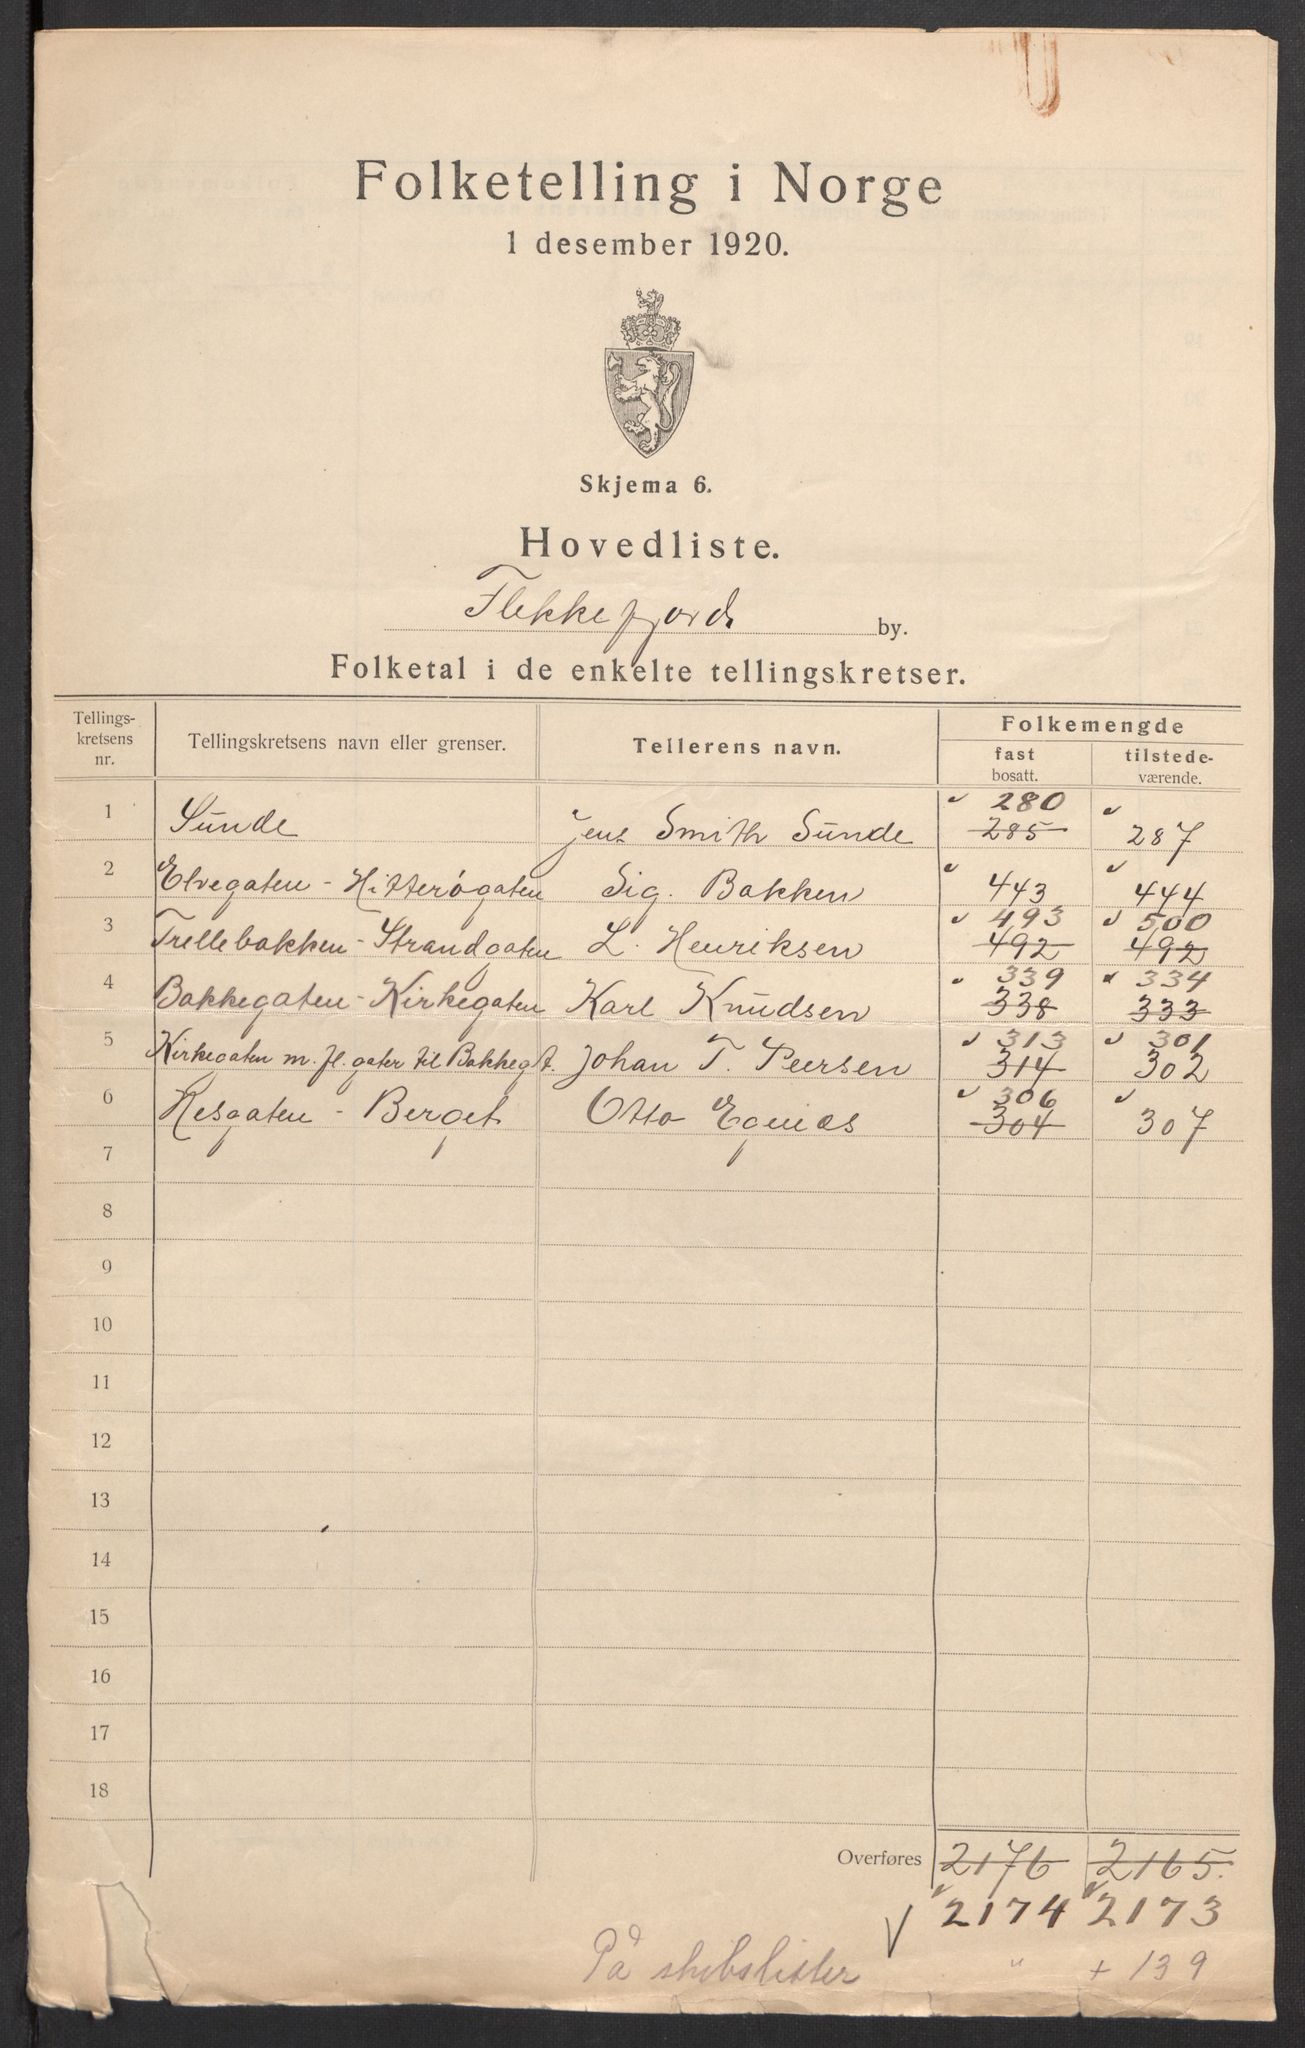 Folketelling i Norge
1 desember 1920.
Skjema 6.
Hovedliste.
Flekkefjords by.
Folketal i de enkelte tellingskretser.
Tellings-kretsens nr. Tellingskretsens navn eller grenser. Tellerens navn. Folkemengde
fast bosatt. tilstede-værende.
280
1 Sunde Jens Smith Sunde 285 287
2 Elvegaten - Hitterøgaten Sig. Bakken 443 444
493 500
3 Trellebakken - Strandgaten L. Henriksen 492 492
339 334
4 Bakkegaten - Kirkegaten Karl Knudsen 338 333
313 301
5 Kirkegaten m. fl. gater til Bakkegt. Johan T. Peersen 314 302
306
6 Resgaten - Berget Otto 304 307
7
8
9
10
11
12
13
14
15
16
17
18
Overføres 2176 2165.
2174 2173
På skibslister " + 139